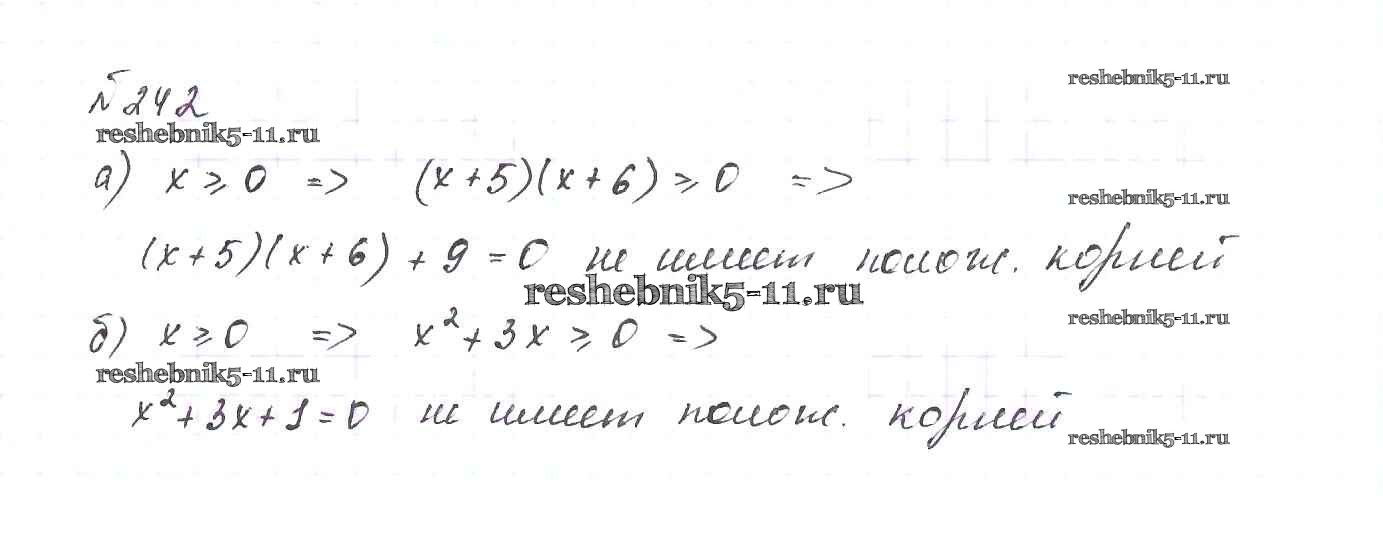 №242
reshebnik5-11.ru
reshebnik5-11.ru
а) x ≥ 0 => (x+5)(x+6) ≥ 0 =>
reshebnik5-11.ru
(x+5)(x+6) + 9 = 0 не имеет полож. корней
reshebnik5-11.ru
б) x ≥ 0 => x² + 3x ≥ 0 =>
reshebnik5-11.ru
reshebnik5-11.ru
x² + 3x + 1 = 0 не имеет полож. корней
reshebnik5-11.ru